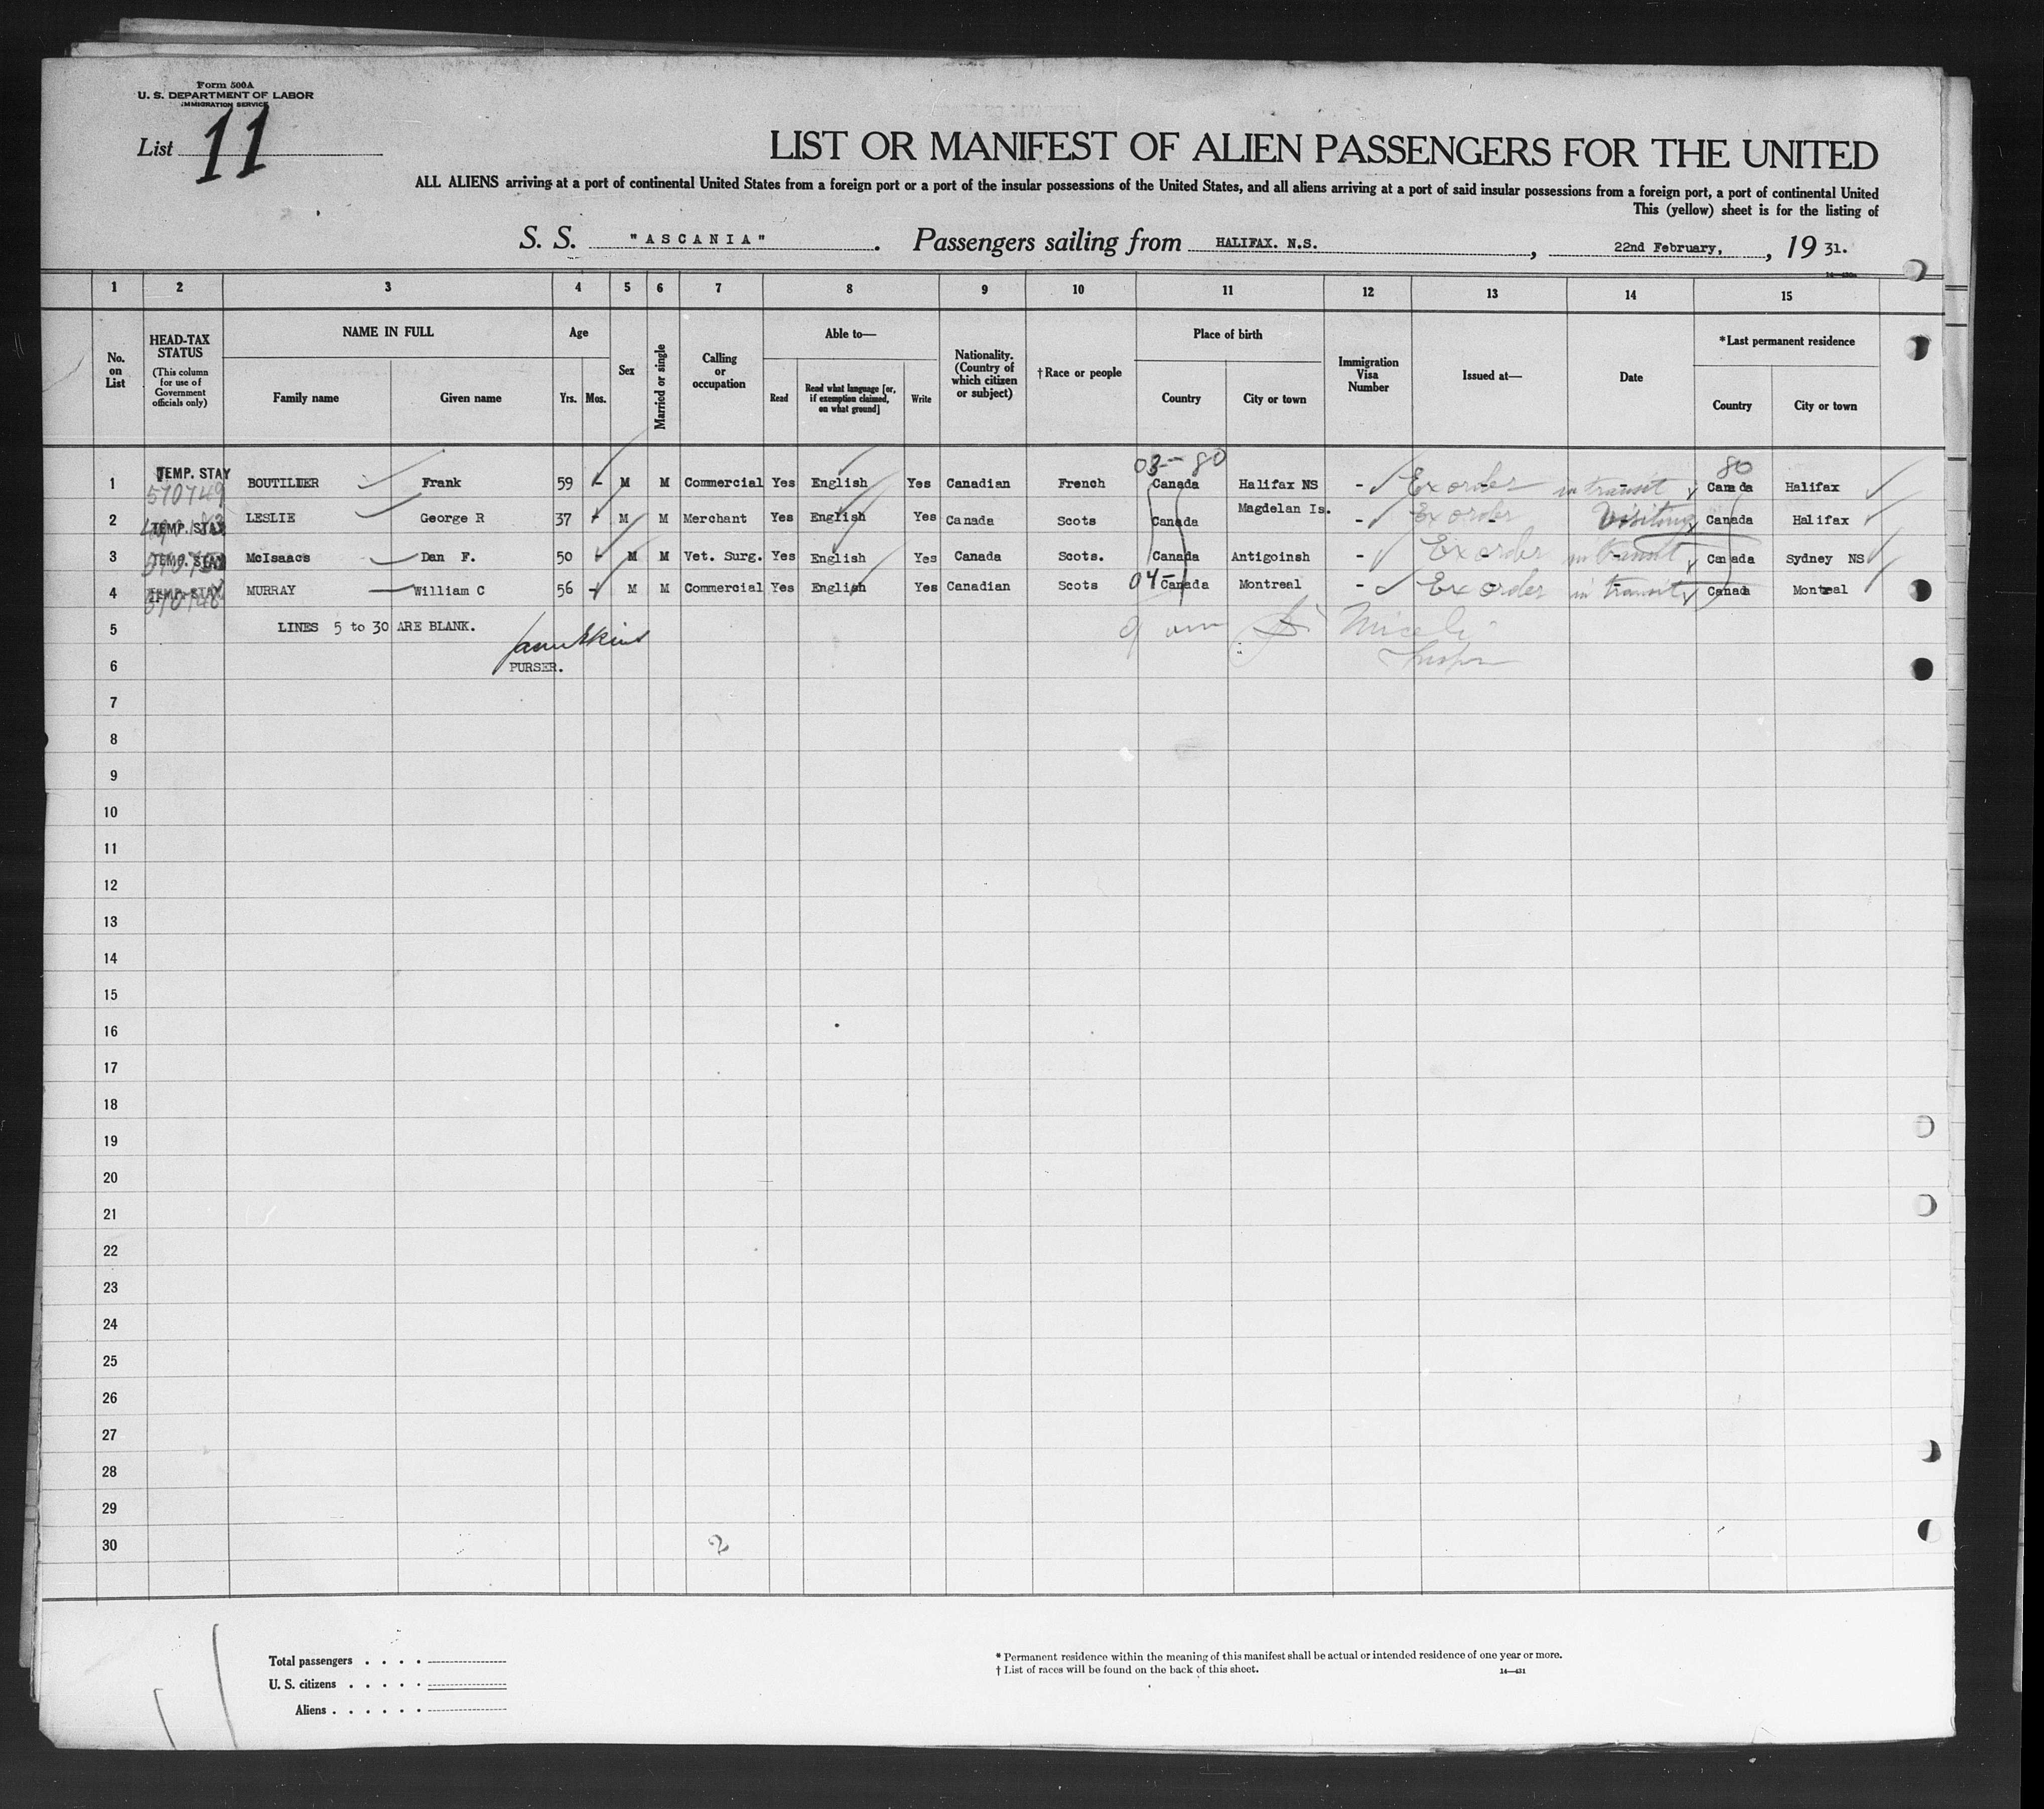 Form 500A
U. S. DEPARTMENT OF LABOR
IMMIGRATION SERVICE
List 11
LIST OR MANIFEST OF ALIEN PASSENGERS FOR THE UNITED
ALL ALIENS arriving at a port of continental United States from a foreign port or a port of the insular possessions of the United States, and all aliens arriving at a port of said insular possessions from a foreign port, a port of continental United
This (yellow) sheet is for the listing of
S. S. "ASCANIA". Passengers sailing from HALIFAX. N.S., 22nd February, , 19 31.
1 2 3 4 5 6 7 8 9 10 11 12 13 14 15
No. on List
HEAD-TAX STATUS
(This column for use of Government officials only)
NAME IN FULL
Family name
Given name
Age
Yrs. Mos.
Sex
Married or single
Calling or occupation
Able to—
Read
Read what language [or, if exemption claimed, on what ground]
Write
Nationality. (Country of which citizen or subject)
†Race or people
Place of birth
Country
City or town
Immigration Visa Number
Issued at—
Date
*Last permanent residence
Country
City or town
03- 80 80
1 TEMP. STAY 570749 BOUTILIER Frank 59 - M M Commercial Yes English Yes Canadian French Canada Halifax NS - Ex order in transit Canada Halifax
2 TEMP. STAY LESLIE George R 37 - M M Merchant Yes English Yes Canada Scots Canada Magdelan Is. - Ex order Visiting Canada Halifax
3 TEMP. STAY McIsaacs Dan F. 50 - M M Vet. Surg. Yes English Yes Canada Scots. Canada Antigoinsh - Ex order in transit Canada Sydney NS
4 TEMP. STAY 570748 MURRAY William C 56 - M M Commercial Yes English Yes Canadian Scots 04- Canada Montreal - Ex order in transit Canada Montreal
5 LINES 5 to 30 ARE BLANK.
6 PURSER.
7
8
9
10
11
12
13
14
15
16
17
18
19
20
21
22
23
24
25
26
27
28
29
30 2
Total passengers . . . .
U. S. citizens . . . . .
Aliens . . . . . .
* Permanent residence within the meaning of this manifest shall be actual or intended residence of one year or more.
† List of races will be found on the back of this sheet. 14—431